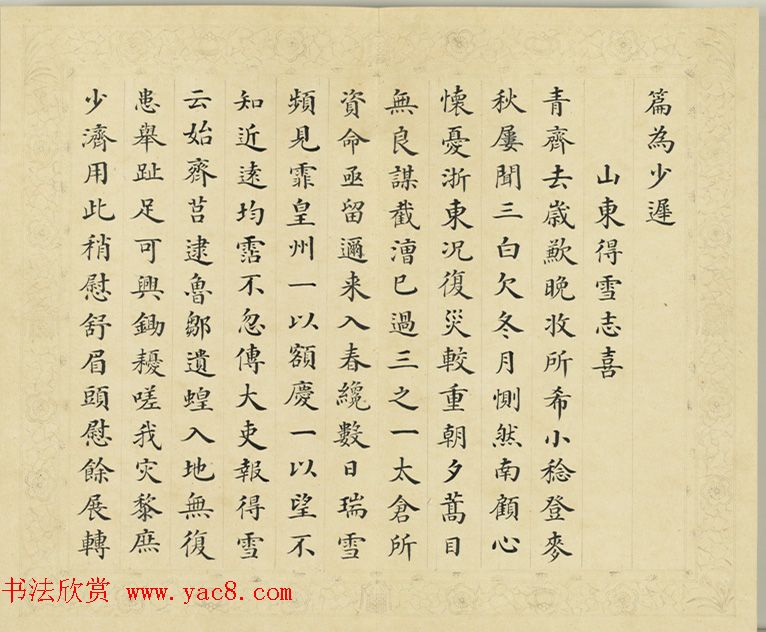 篇為少遲
山東得雪志喜
青齊去歳歉晚收所希小稔登麥
秋屢聞三白欠冬月惻然南顧心
懐憂浙東况復災較重朝夕蒿目
無良謀截漕已過三之一太倉所
資命亟留邇来入春纔數日瑞雪
頻見霏皇州一以額慶一以望不
知近遠均霑不忽傳大吏報得雪
云始齊莒逮魯鄒遺蝗入地無復
患舉趾足可興鋤耰嗟我灾黎庶
少濟用此稍慰舒眉頭慰餘展轉
书法欣赏 www.yac8.com